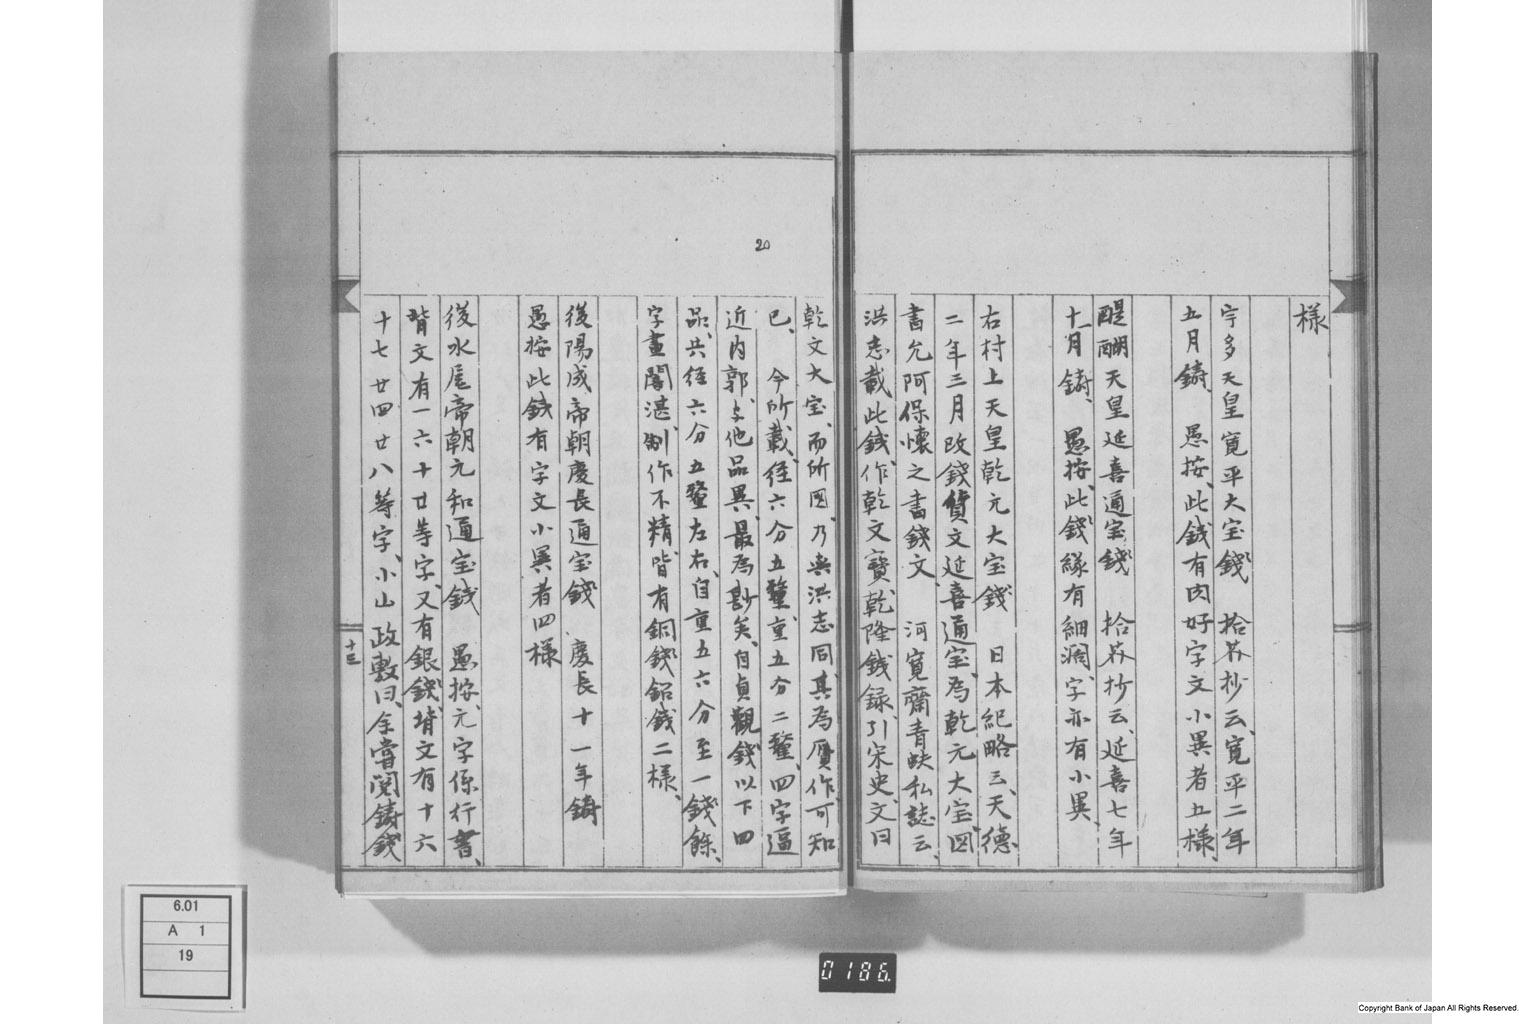 様
宇多天皇寛平大宝錢　拾芥抄云、寛平二年
五月鑄、愚按、此錢有肉好字文小異者五様、
醍醐天皇延喜通宝錢　拾芥抄云、延喜七年
十一月鑄、愚按、此錢緣有細濶、字亦有小異、
右村上天皇乾元大宝錢　日本紀略云、天德
二年三月改錢貨文延喜通宝、為乾元大宝、図
書允阿保懷之書錢文、河寛齋青蚨私誌云、
洪志載此錢、作乾文寶、乾隆錢録、引宋史、文曰
乾文大宝、而所図、乃与洪志同、其為贋作可知
已、今所載、径六分五釐、重五分二釐、四字逼
近内郭、与他品異、最為尠矣、自貞觀錢以下四
品、共径六分五釐左右、自重五六分至一錢餘、
字畫闇湛、制作不精、皆有銅錢鉛錢二様、
後陽成帝朝慶長通宝錢　慶長十一年鑄
愚按此錢有字文小異者四様
後水尾帝朝元和通宝錢　愚按、元字係行書、
背文有一六十廿等字、又有銀錢、背文有十六
十七廿四廿八等字、小山政敷曰、余嘗閲鑄錢
十三
20
6.01
A 1
19
0186.
Copyright Bank of Japan All Rights Reserved.